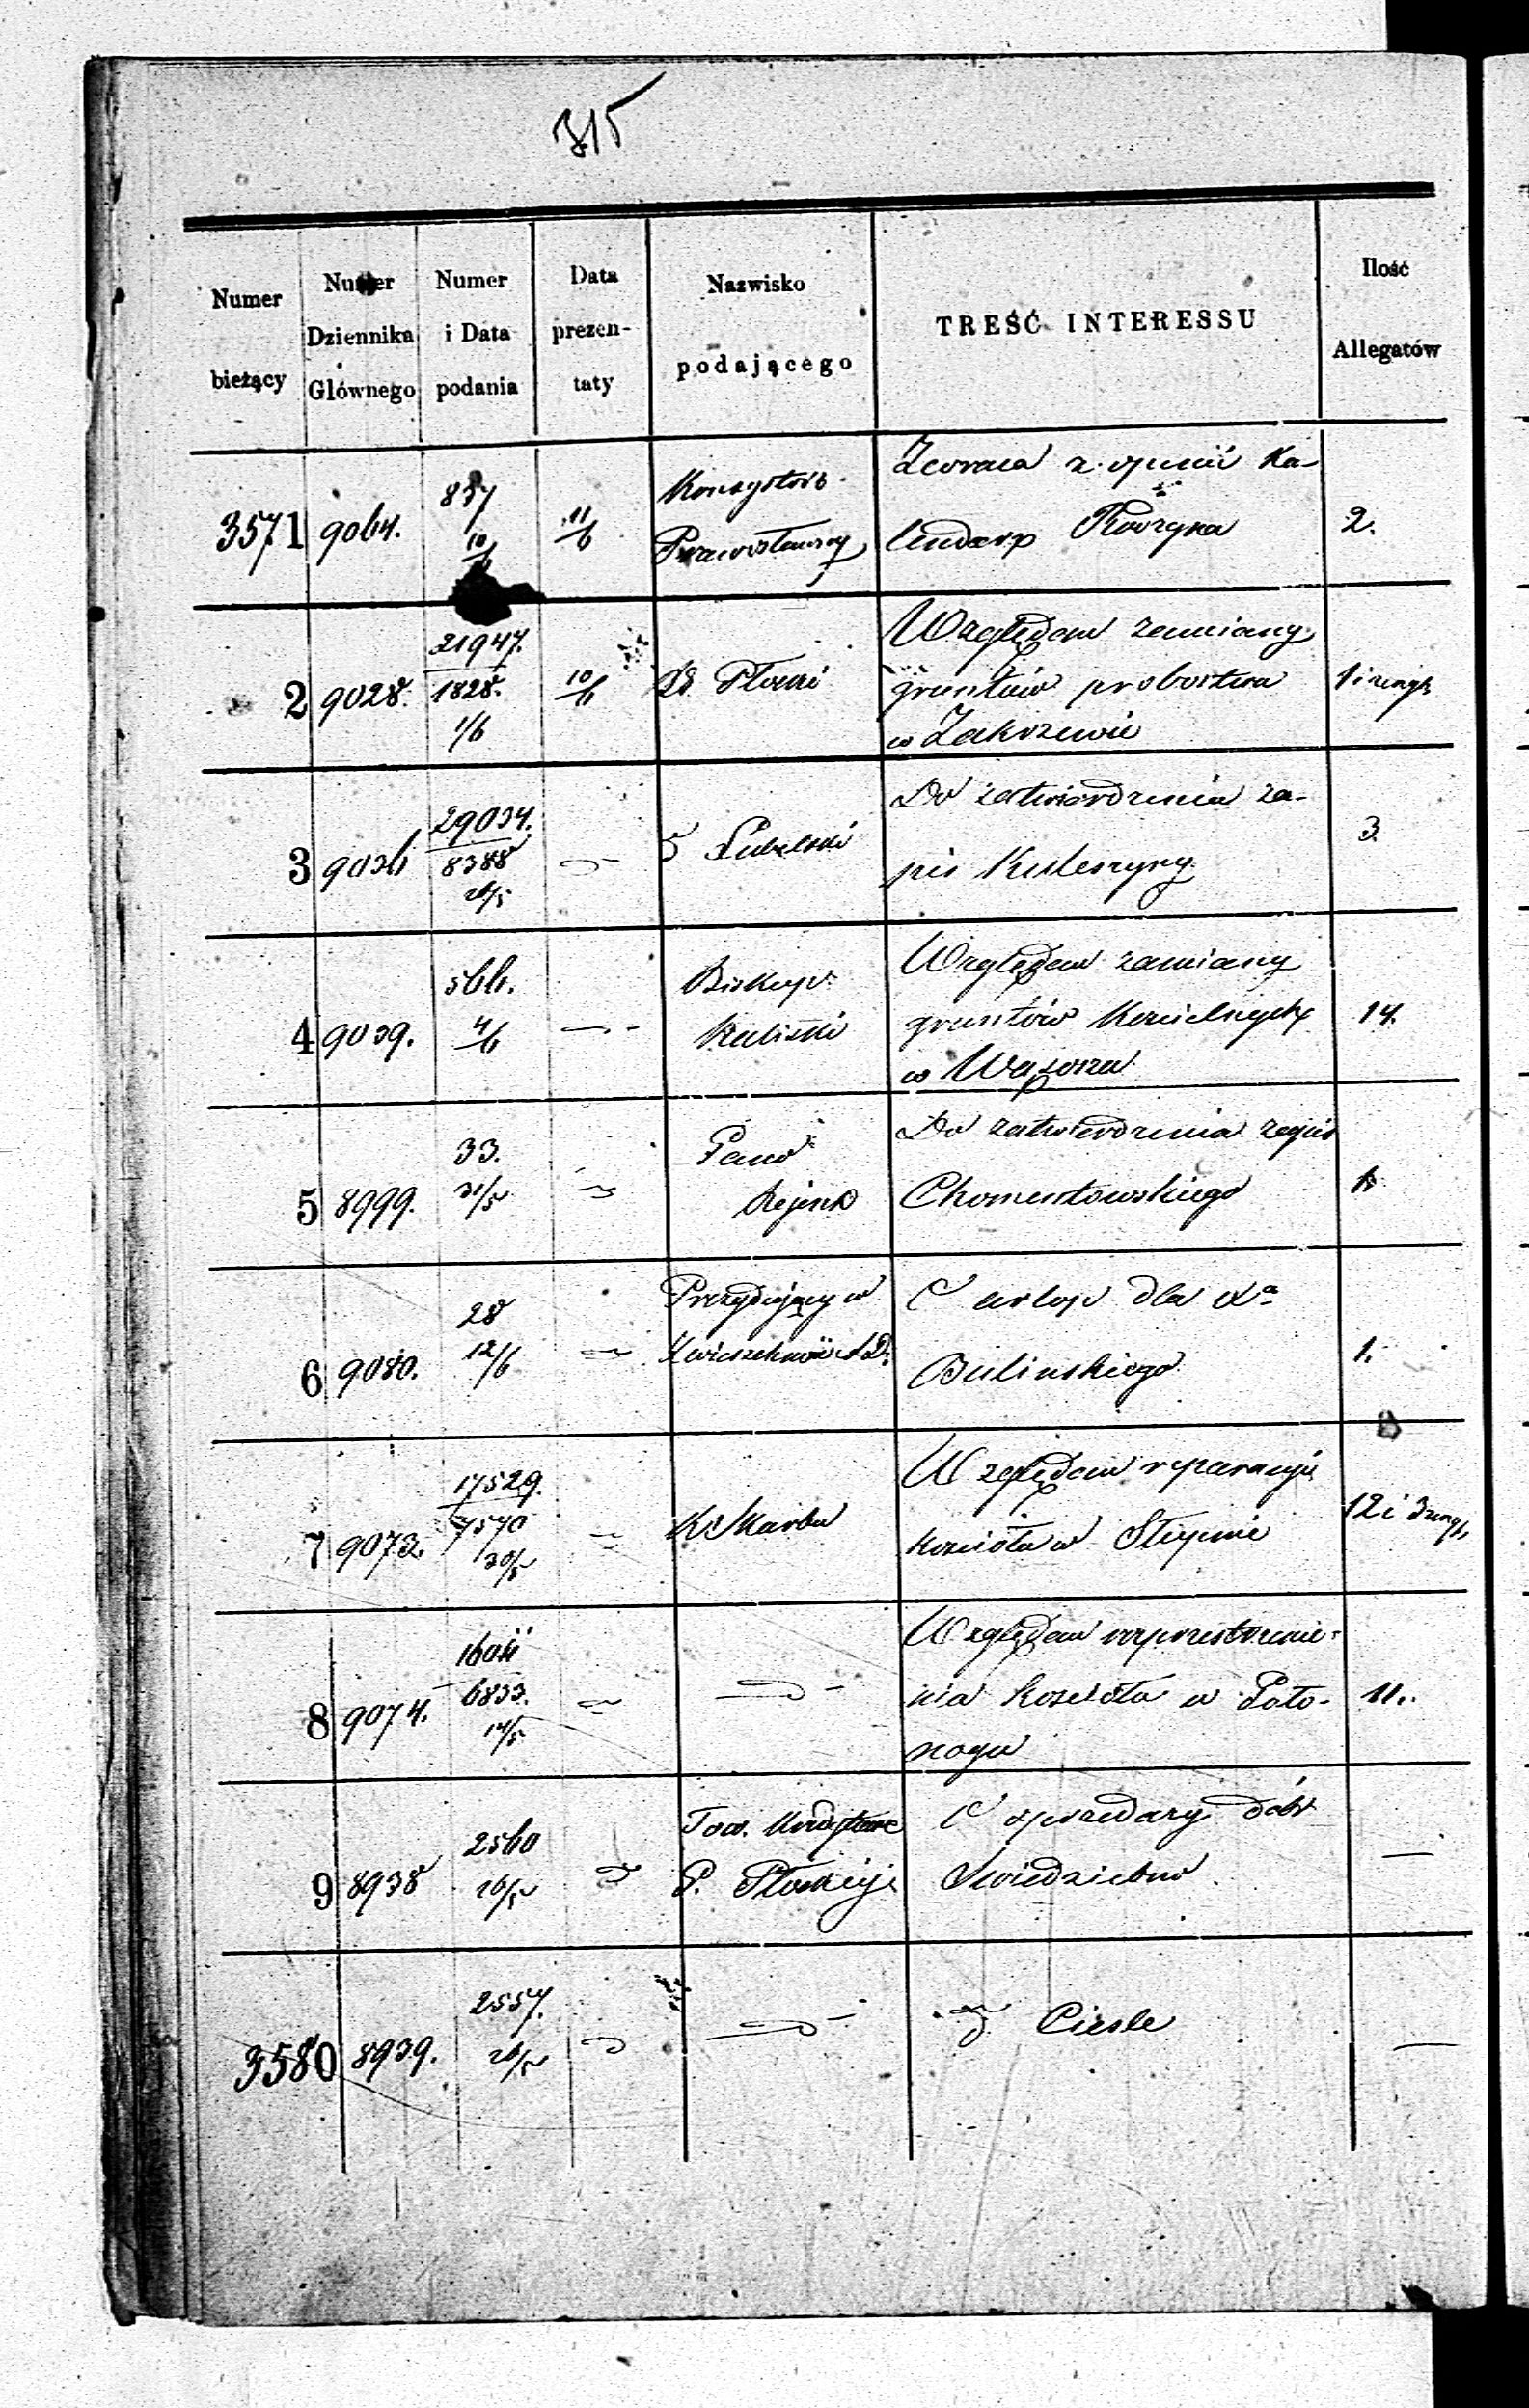 315
Numer bieżący
Numer Dziennika Głównego
Numer i Data podania
Data prezen- taty
Nazwisko podającego
TREŚĆ INTERESSU
Ilość Allegatów
3571 9064. 837 10/6 11/6
Konsystorz
Prawosławny
Zwraca z opinii Ka-
lendarz
2.
2 9028. 21947. 1828. 1/6 10/6
Płocki
Względem zamiany
gruntów probostwa
w Zakrzewie
3 9036 29034. 8388 26/5
Lubelski
Do zatwierdzenia za-
pis Kuleszyny
3.
4 9039. 566. 4/6
Biskup
Kaliski
Względem zamiany
gruntów Kościelnych
w Wąsosza
14.
5 8999. 33. 31/5
Rejent
Do zatwierdzenia zapis
Chomentowskiego
6 9080. 28 12/6
Prezydujący w
O urlop dla Xa
Bulinskiego
1.
7 9073. 17529. 7570 30/5
K. Skarbu
Względem reparacyi
kościoła w
12 i 3
8 9074. 6833. 14/5
Względem
nia kościoła w Poto-
11.
9 8938 2560 26/5
Tow. Kredytowe
P. Płockiej
O sprzedaży dóbr
Swiedziebno
—
3580 8939. 2557. 26/5
Ciesle
—